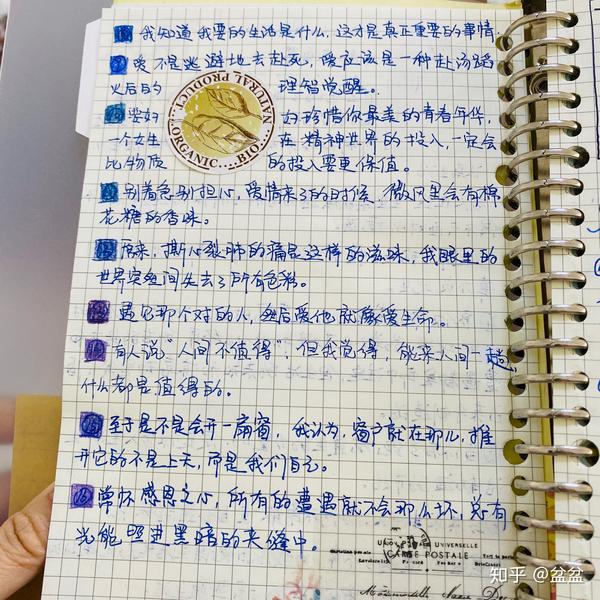 我知道我要的生活是什么,这才是真正重要的事情.
爱不是逃避地去赴死,爱应该是一种赴汤蹈
火后的 理智觉醒。
要好 好珍惜你最美的青春年华,
一个女生 在精神世界的投入,一定会
比物质 的投入要更保值。
NATURAL PRODUCT
ORGANIC BIO
别着急别担心,爱情来了的时候,微风里会有棉
花糖的香味。
原来,撕心裂肺的痛是这样的滋味,我眼里的
世界突然间失去了所有色彩。
遇见那个对的人,然后爱他就像爱生命。
有人说"人间不值得",但我觉得,能来人间一趟,
什么都是值得的。
至于是不是会开一扇窗,我认为,窗户就在那儿,推
开它的不是上天,而是我们自己。
常怀感恩之心,所有的遭遇就不会那么坏,总有
光能照进黑暗的夹缝中。
UNION POSTALE UNIVERSELLE
CARTE POSTALE
知乎 @盆盆